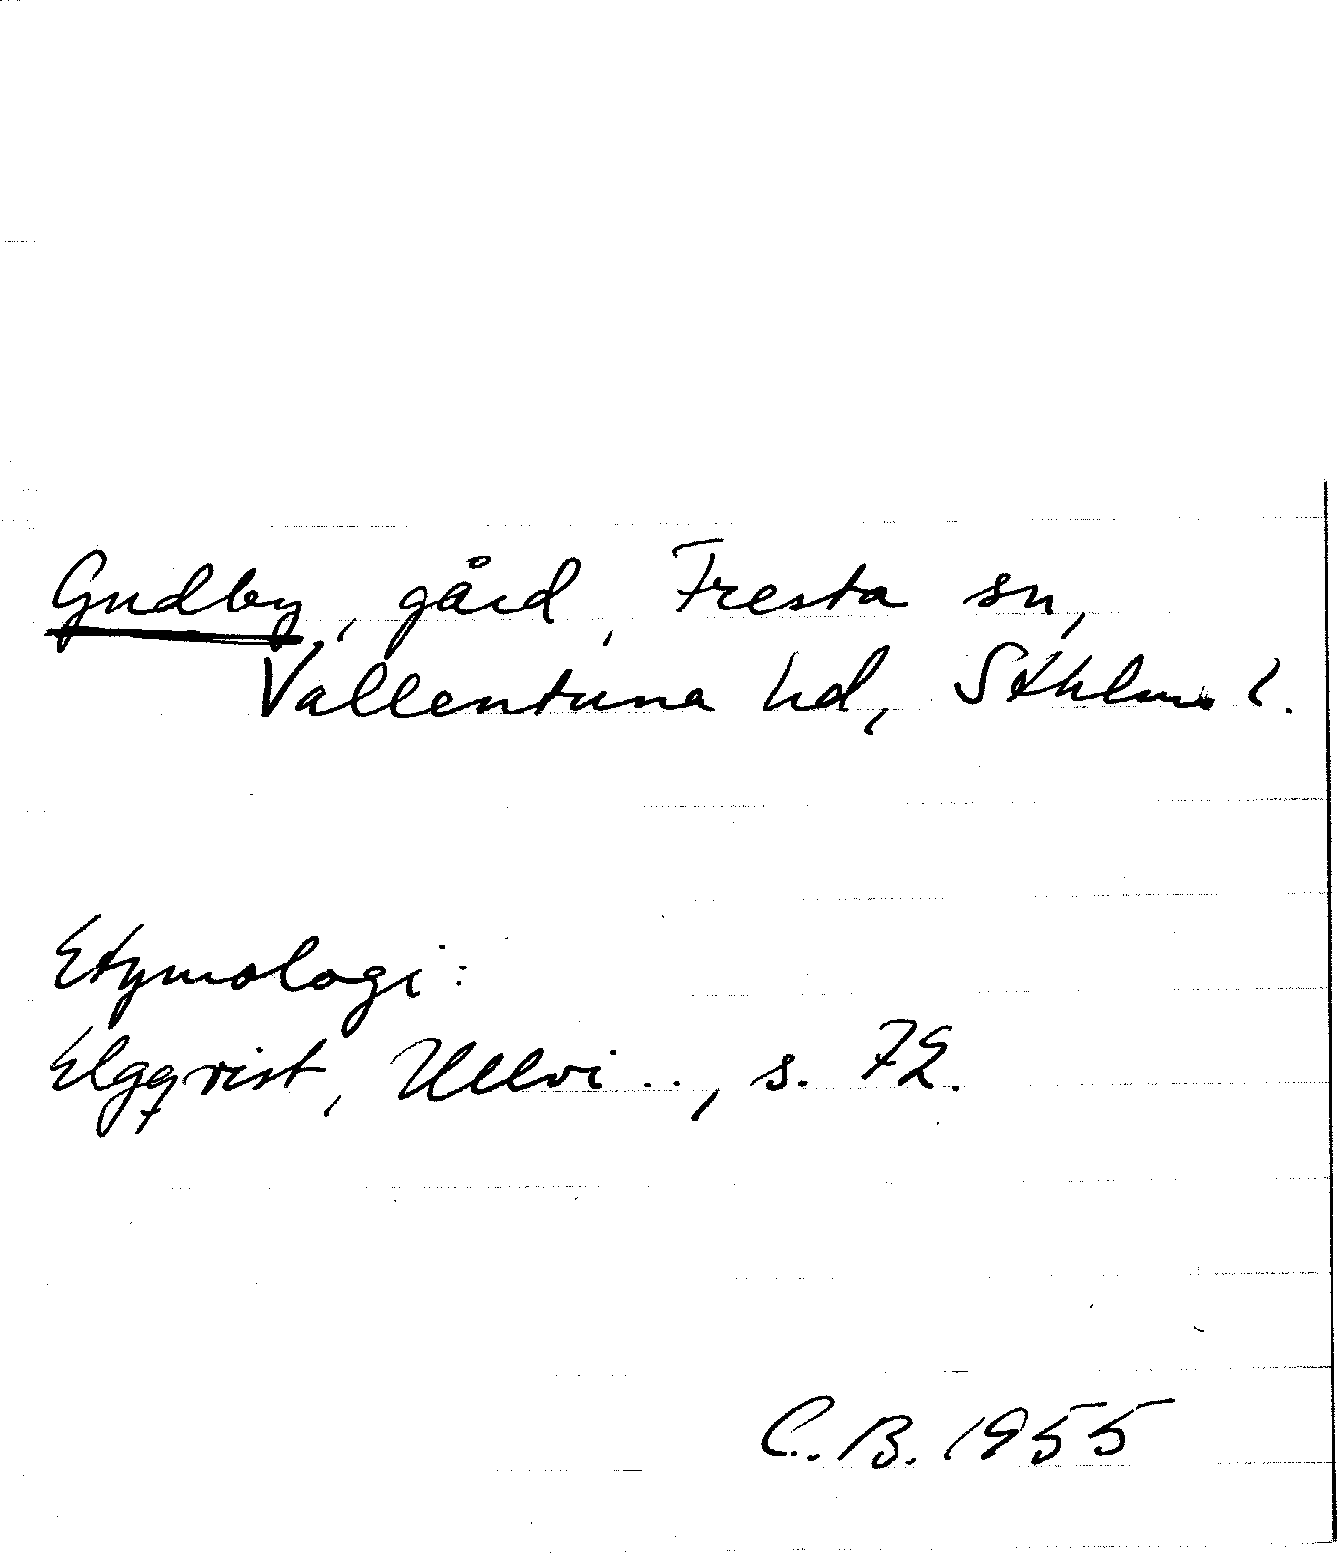 Gudby, gård, Fresta sn,
Vallentuna hd, Sthlms l.
Etymologi:
Elgqvist, Ullvi .., s. 72.
C.B. 1955